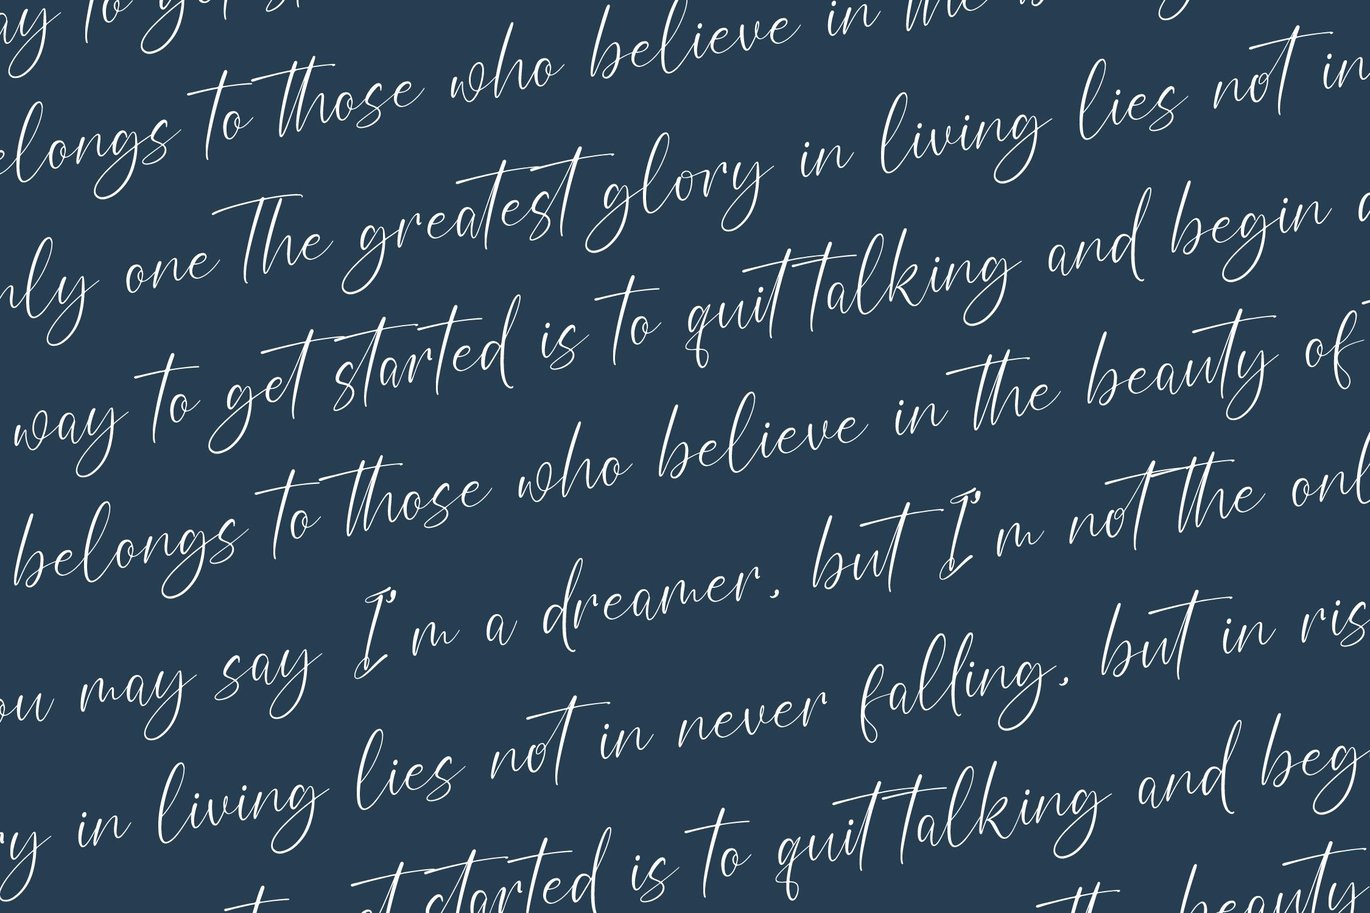 ay to get
elongs to those who believe in the
nly one The greatest glory in living lies not in
way to get started is to quit talking and begin
belongs to those who believe in the beauty of
ou may say I'm a dreamer, but I'm not the onl
ry in living lies not in never falling, but in ris
started is to quit talking and beg
beauty